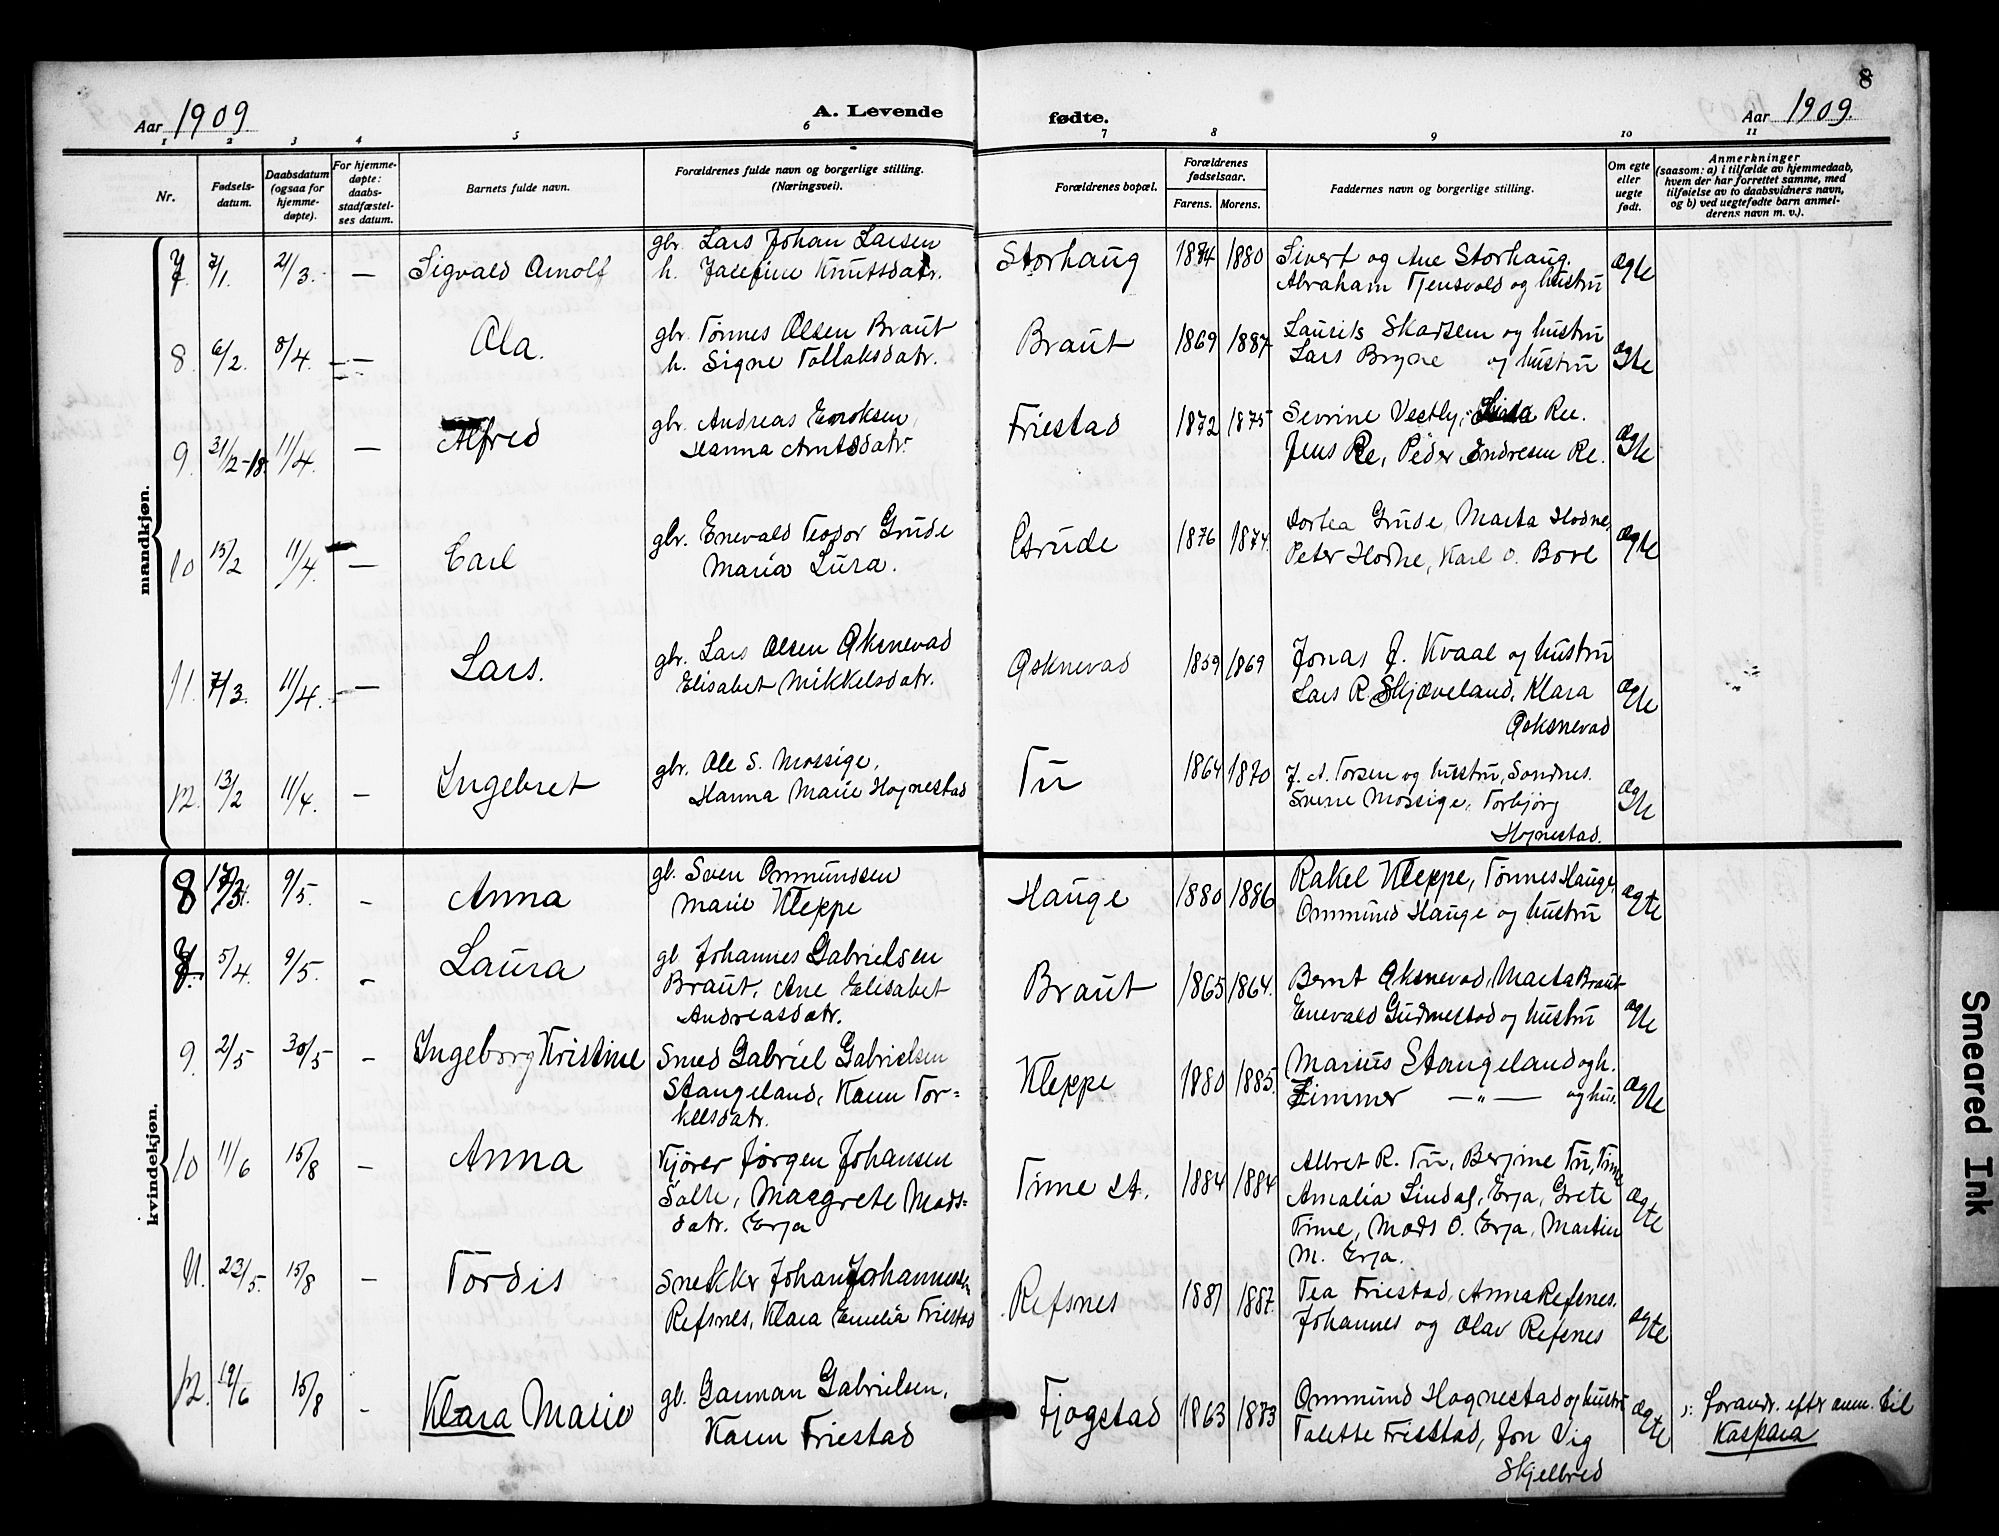 8
Aar 1909.
A. Levende
fødte.
Aar 1909.
1 2 3 4 5 6 7 8 9 10 11
Nr.
Fødsels-
datum.
Daabsdatum
(ogsaa for
hjemme-
døpte).
For hjemme-
døpte:
daabs-
stadfæstel-
ses datum.
Barnets fulde navn.
Forældrenes fulde navn og borgerlige stilling.
(Næringsvei).
Forældrenes bopæl.
Forældrenes
fødselsaar.
Farens. Morens.
Faddernes navn og borgerlige stilling.
Om egte
eller
uegte
født.
Anmerkninger
(saasom: a) i tilfælde av hjemmedaab,
hvem der har forrettet samme, med
tilføielse av to daabsvidners navn,
og b) ved uegtefødte barn anmel-
derens navn m. v.).
mandkjøn.
7. 7/1. 21/3. — Sigvald Arnolf gbr. Lars Johan Larsen Storhaug 1874 1880 Sivert og Ane Storhaug. ægte
h. Josefine Knutsdatr. Abraham Tjensvold og hustru
8. 6/2. 8/4. — Ola. gbr. Tønnes Olsen Braut Braut 1869 1887 Laurits Skadsem og hustru ægte
h. Signe Tollaksdatr. Lars Bryne og hustru
9. 31/2-18. 11/4. — Alfred gbr. Andreas Enoksen, Friestad 1872 1875 Sevrine Vestly, Ree. ægte
Hanna Arntsdatr. Jens Re, Peder Endresen Re.
10 15/2 11/4. — Carl gbr. Enevald Teodor Grude Grude 1876 1874. Dortea Grude, Marta Hodne, ægte
Maria Lura. Peter Hodne, Karl O. Bore
11. 7/3. 11/4. — Lars. gbr. Lars Olsen Øksnevad Øksnevad 1859 1869 Jonas J. Kvaal og hustru ægte
Elisabet Mikkelsdatr. Lars R. Skjæveland, Klara
Øksnevad
12. 13/2 11/4. — Ingebret gbr. Ole S. Mossige, Tu 1864 1870 J. A. Torsen og hustru, Sandnes. ægte
Hanna Marie Hognestad Sverre Mossige, Torbjørg
Hognestad.
kvindekjøn.
8 9/5. — Anna gb. Sven Ommundsen Hauge 1880 1886 Rakel Kleppe, Tønnes Hauge, ægte
Marie Kleppe Ommund Hauge og hustru
5/4. 9/5. — Laura gb. Johannes Gabrielsen Braut 1865 1864. Bernt Øksnevad, Marta Braut ægte
Braut, Ane Elisabet Enevald Gudmestad og hustru
Andreasdatr.
9. 2/5 30/5 — Ingeborg Kristine Smed Gabriel Gabrielsen Kleppe 1880 1885. Marius Stangeland og h. ægte
Stangeland, Karen Tor- Zimmer —"— og hus.
kelsdatr.
10 11/6 15/8 — Anna Kjører Jørgen Johansen Time st. 1884 1884 Albret R. Tu, Berjine Tu, Time ægte
Salte, Margrete Mads- Amalia Lindaf, Erja, Grete
datr. Erja Time, Mads O. Erja, Martin
M. Erja.
11. 23/5. 15/8 — Tordis Snekker Johan Johannessen Refsnes 1881 1887. Tea Friestad, Anna Refsnes. ægte
Refsnes, Klara Emelia Friestad Johannes og Olav Refsnes
12. 19/6 15/8 — Klara Marie gb. Gunnar Gabrielsen, Fjogstad 1863 1883 Ommund Hognestad og hustru ægte forandr. efter anm. til
Karen Friestad Talette Friestad, Jon Vig Kaspara
Skjelbred
Smeared Ink